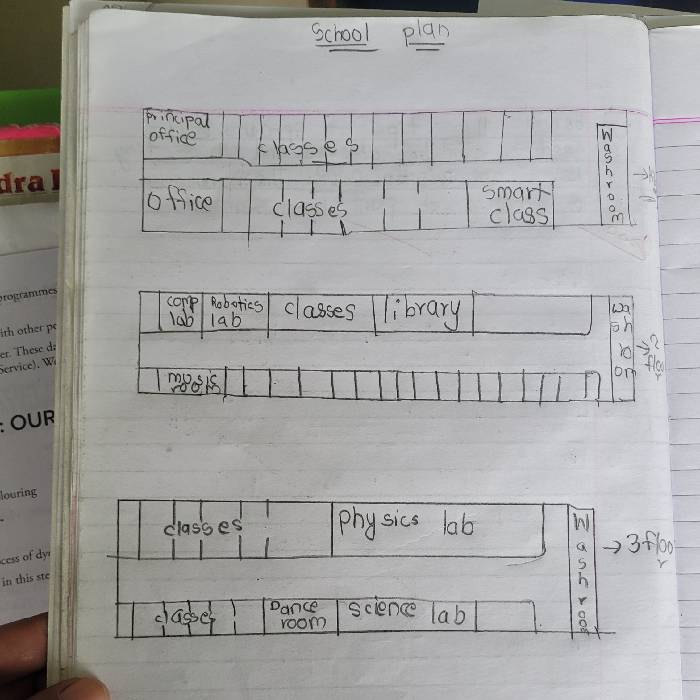 School plan
principal
office
classes
office
classes
smart
class
Washroom
comp
lab
Robotics
lab
classes
library
washroom
→ 2
floo
r
classes
physics lab
Washroom
→ 3 floo
r
classes
Dance
room
science lab
dra
programmes
ith other pe
er. These da
Service). W
: OUR
louring
cess of dy
in this ste